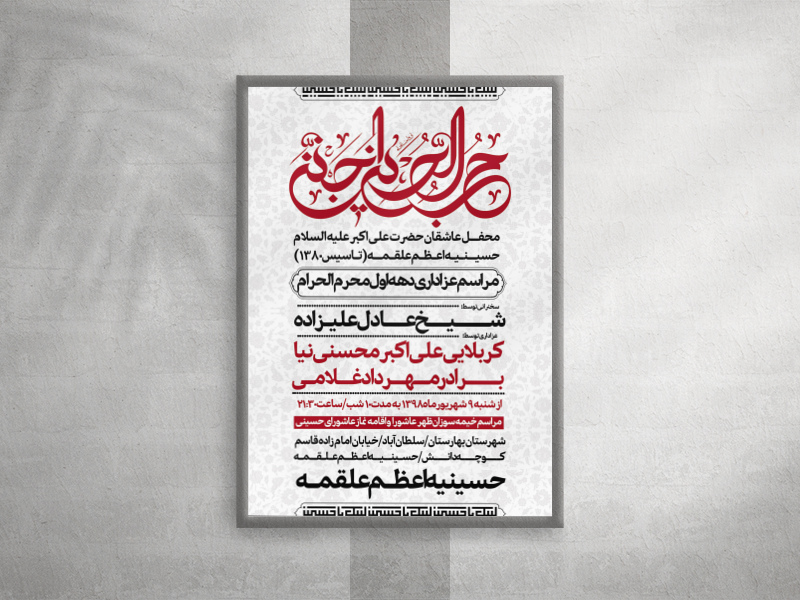 لبیک یا حسین لبیک یا حسین لبیک یا حسین
حب الحسین اجننی
محفل عاشقان حضرت علی اکبر علیه السلام
حسینیه اعظم علقمه (تاسیس ۱۳۸۰)
مراسم عزاداری دهه اول محرم الحرام
سخنرانی توسط:
شیخ عادل علیزاده
عزاداری توسط:
کربلایی علی اکبر محسنی نیا
برادر مهرداد غلامی
از شنبه ۹ شهریور ماه ۱۳۹۸ به مدت ۱۰ شب/ساعت ۲۱:۳۰
مراسم خیمه سوزان ظهر عاشورا و اقامه نماز عاشورای حسینی
شهرستان بهارستان/سلطان آباد/خیابان امام زاده قاسم
کوچه دانش/حسینیه اعظم علقمه
حسینیه اعظم علقمه
لبیک یا حسین لبیک یا حسین لبیک یا حسین